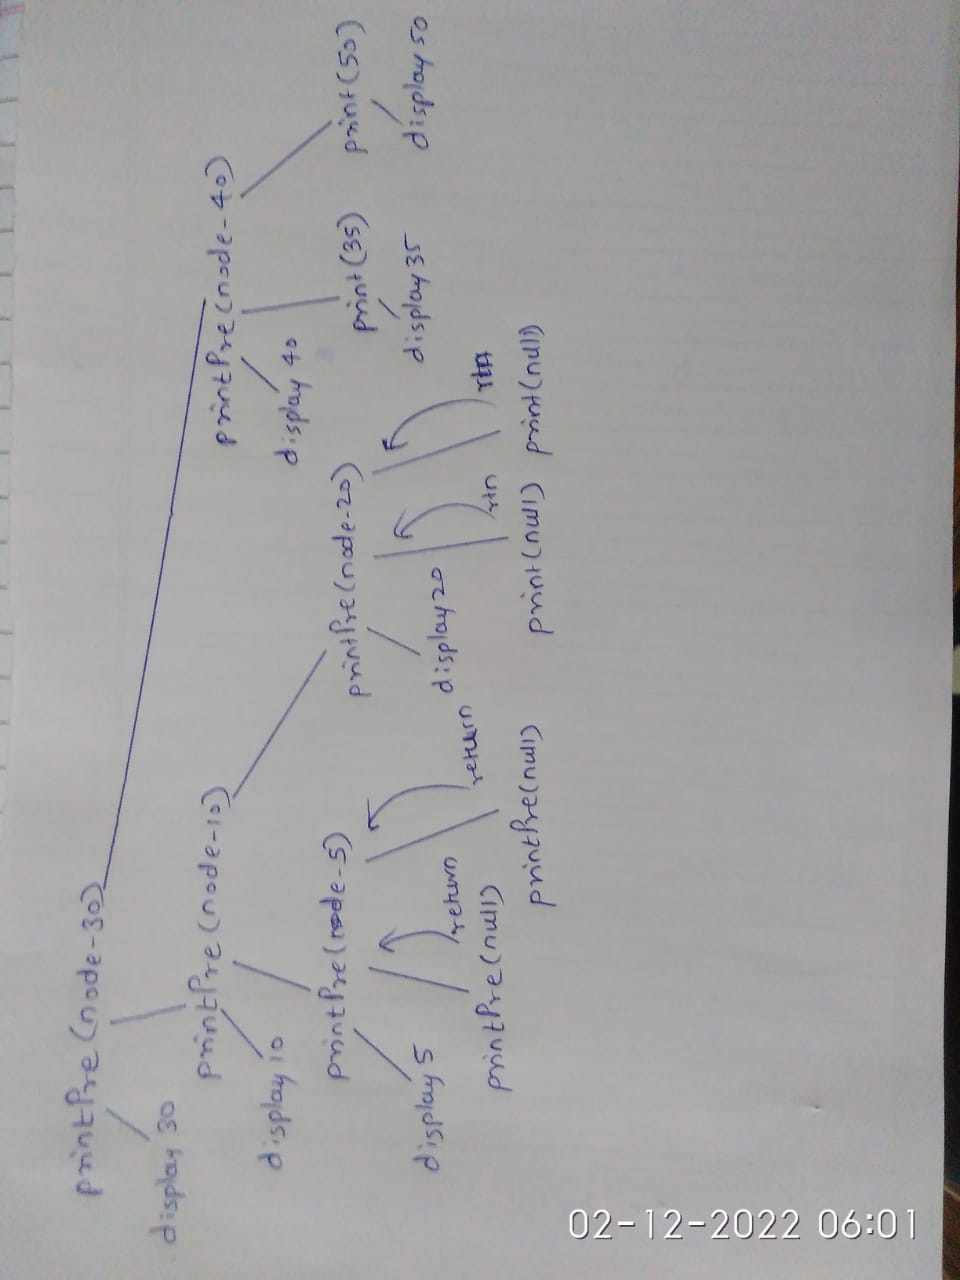 printPre(node-30)
display 30
printPre(node-10)
printPre(node-40)
display 10
display 40
printPre(node-5)
printPre(node-20)
print(35)
print(50)
display 5
return
return
display 20
rtn
rtn
display 35
display 50
printPre(null)
printPre(null)
print(null)
print(null)
02-12-2022 06:01